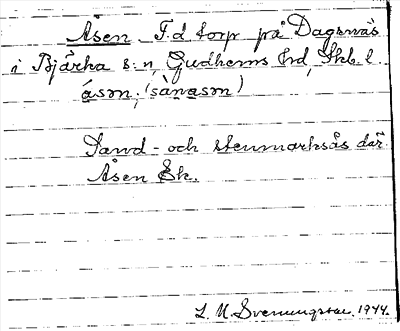 Åsen F.d torp på Dagsnäs
i Bjärka s:n, Gudhems hrd, Skb. l.
åsən, (sànasən)
Sand- och stenmarksås där
Åsen Ek.
L. M. Svenungsson. 1944.